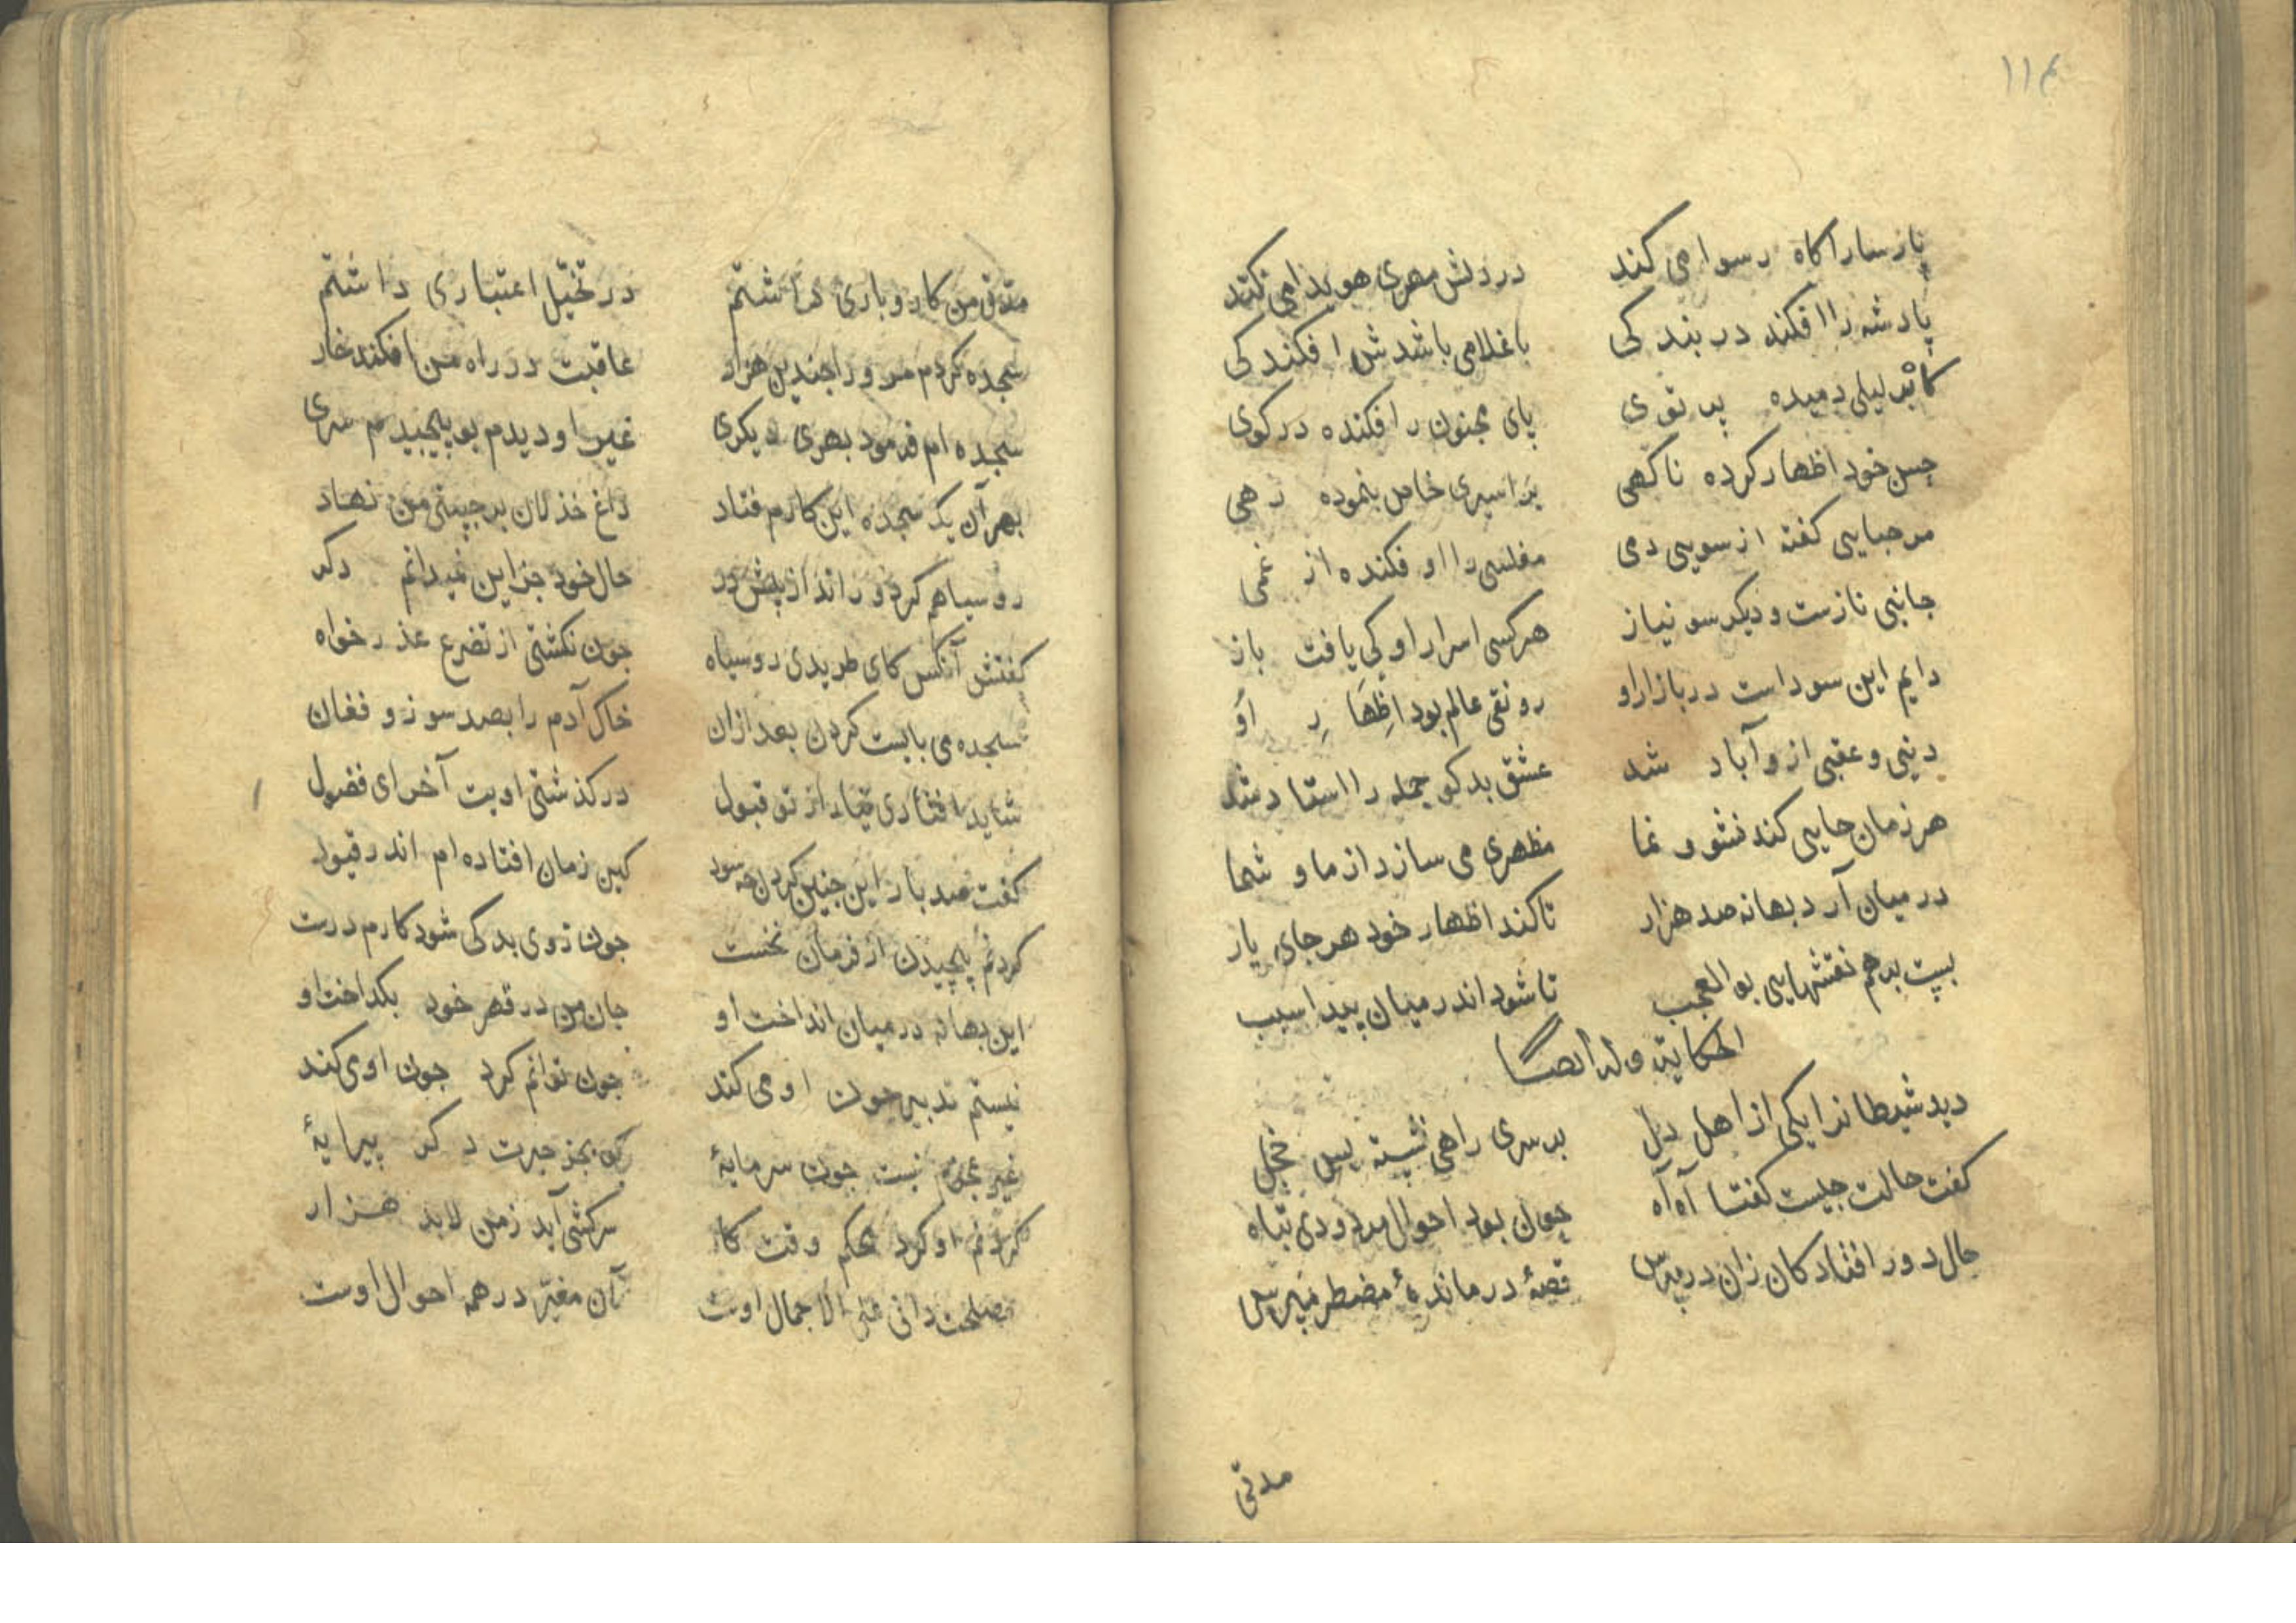 ۱۱۴
پارسارا کاه رسوا می کند در دلش مهری هویدا می کند
پادشه را افکند در بند کی با غلامی باشدش افکند کی
کاثر لیلی دمیده پرتوی پای مجنون را افکنده در کوی
حسن خود اظهار کرده ناکهی بر اسیری خاص بنموده رهی
مرحبایی کفته از سویی دمی مفلسی را او فکنده از غمی
جانبی نازست و دیکر سو نیاز هر کسی اسرار او کی یافت باز
دایم این سوداست در بازار او رونق عالم بود اظهار او
دنیی و عقبی از و آباد شد عشق بد کو جمله را استاد شد
هر زمان جایی کند نشو و نما مظهری می سازد از ما و شما
در میان آرد بهانه صد هزار تا کند اظهار خود هر جای یار
بست بر هم نقشهایی بو العجب تا شود اندر میان پیدا سبب
الحکایة وله ایضا
دید شیطانرا یکی از اهل دل بر سری راهی نشسته بس خجل
کفت حالت چیست کفتا آه آه چون بود احوال مردودی تباه
حال دور افتادکان زان در مپرس قصۀ درماندۀ مضطر مپرس
مدتی
مدتی من کار و باری داشتم در تخیّل اعتباری داشتم
سجده کردم مر ورا چندین هزار عاقبت در راه من افکند خار
سجده ام فرمود بهری دیکری غیر او دیدم بو پیچیدم سری
بهر آن یک سجده این کارم فتاد داغ خذلان بر جبینی من نهاد
رو سیاهم کرد و راند از پیش در حال خود جز این نمیدانم دکر
کفتش آنکس کای طریدی رو سیاه چون نکشتی از تضرع عذر خواه
سجده می بایست کردن بعد ازان خاک آدم را بصد سوز و فغان
شاید افتادی از تو قبول در کذشتی اویت آخر ای فضول
کفت صد بار این چنین کردن چه سود کین زمان افتاده ام اندر قیود
کردنم پیچیدن از فرمان نخست چون زوی بد کی شود کارم درست
این بهانه در میان انداخت او جان من در قهر خود بکداخت او
نیستم تدبیر چون او می کند چون توانم کرد چون اوی کند
غیر عجزم نیست چون سرمایۀ بجز حیرت دکر پیرایۀ
کردنم او کرد محکم وقت کار سرکشی آید زمن لابد هزار
مصلحت دانی علی الاجمال اوست آن مغیّر در همه احوال اوست